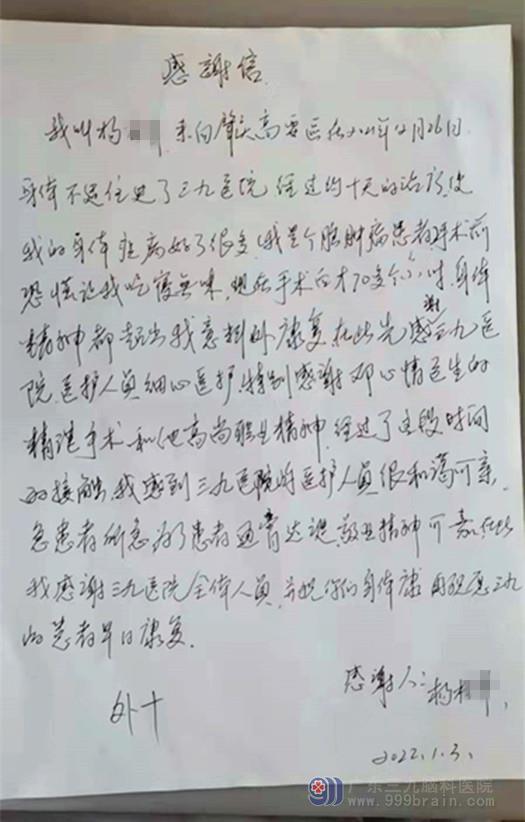 感謝信
我叫杨 来自肇庆高要区在2021年12月26日
身体不适住进了三九医院,经过约十天的治疗,使
我的身体疾病好了很多,(我是个脑肿病患者)手术前
恐慌让我吃寝無味,现在手术后才70多个小时,身体
精神都超出我意料外康复,在此先感謝三九医
院,医护人员细心医护,特别感谢邓心情医生的
精湛手术和他高尚职业精神,经过了这段时间
的接触,我感到三九医院的医护人员很和蔼可亲,
急患者所急,为了患者通宵达旦,敬业精神可嘉,在此
我感谢三九医院全体人员,并祝你们身体康 祝愿三九
的患者早日康复.
感謝人:杨
外十
2022.1.3,
广东三九脑科医院
www.999brain.com